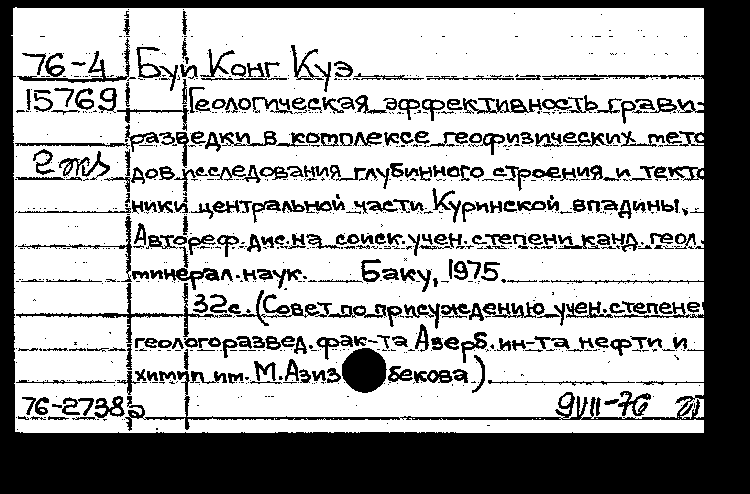 76-4 Буй Конг Куэ.
15769 Геологическая эффективность грави-
разведки в комплексе геофизических мето
2 экз
дов исследования глубинного строения и текто
ники центральной части Куринской впадины,
Автореф.дис.на соиск.учен.степени канд.геол.
минерал.наук. Баку, 1975.
32с. (Совет по присуждению учен.степене
геологоразвед.фак-та Азерб.ин-та нефти и
химии им. М.Азиз бекова).
76-27385 9VII-76